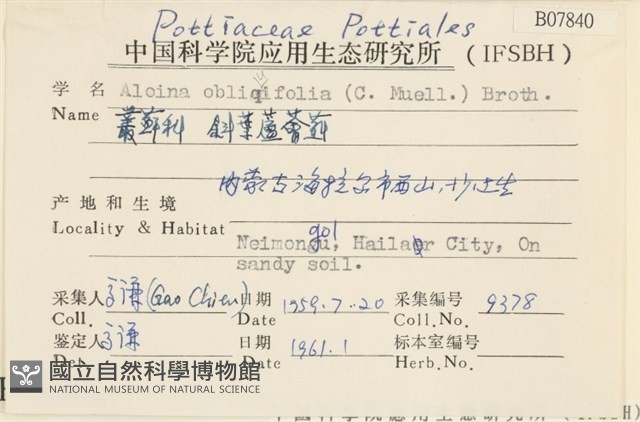 Pottiaceae Pottiales
B07840
中国科学院应用生态研究所 (IFSBH)
学名 Aloina obliqifolia (C. Muell.) Broth.
Name 叢蘚科 斜葉蘆薈蘚
内蒙古海拉尔市西山,沙土生
产地和生境
Locality & Habitat
gol
Neimongu, Hailar City, On
sandy soil.
采集人 高谦 (Gao Chien) 日期 1959.7.20 采集编号 9378
Coll. Date Coll.No.
鉴定人 高谦 日期 1961.1 标本室编号
Det. Date Herb.No.
國立自然科學博物館
NATIONAL MUSEUM OF NATURAL SCIENCE